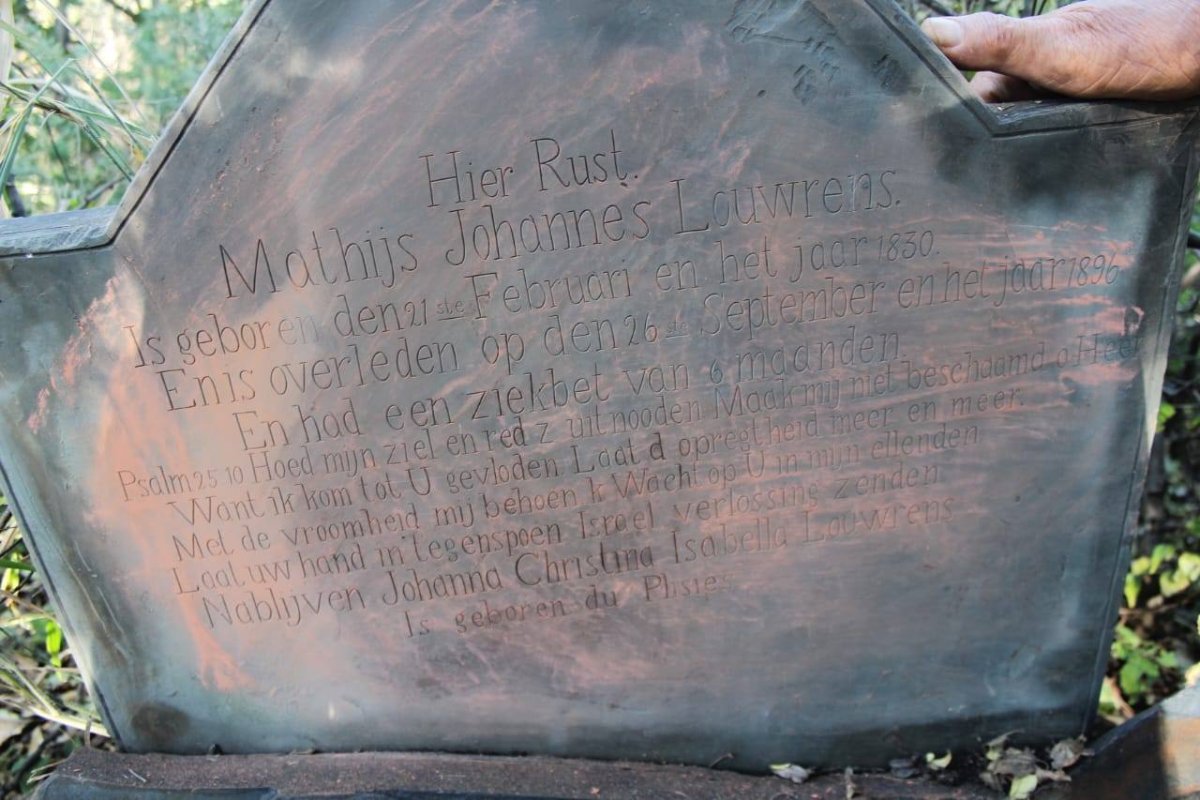 Hier Rust.
Mathijs Johannes Louwrens.
Is geboren den 21 ste Februari en het jaar 1830.
En is overleden op den 26 ste September en het jaar 1896
En had een ziekbet van 6 maanden.
Psalm 25 10 Hoed mijn ziel en red z uit nooden Maak mij niet beschaamd o Heer
Want ik kom tot U gevloden Laat d opregtheid meer en meer.
Met de vroomheid mij behoen k Wacht op U in mijn ellenden
Laat uw hand in tegenspoen Israel verlossing zenden
Nablijven Johanna Christina Isabella Louwrens
Is geboren du Plisies